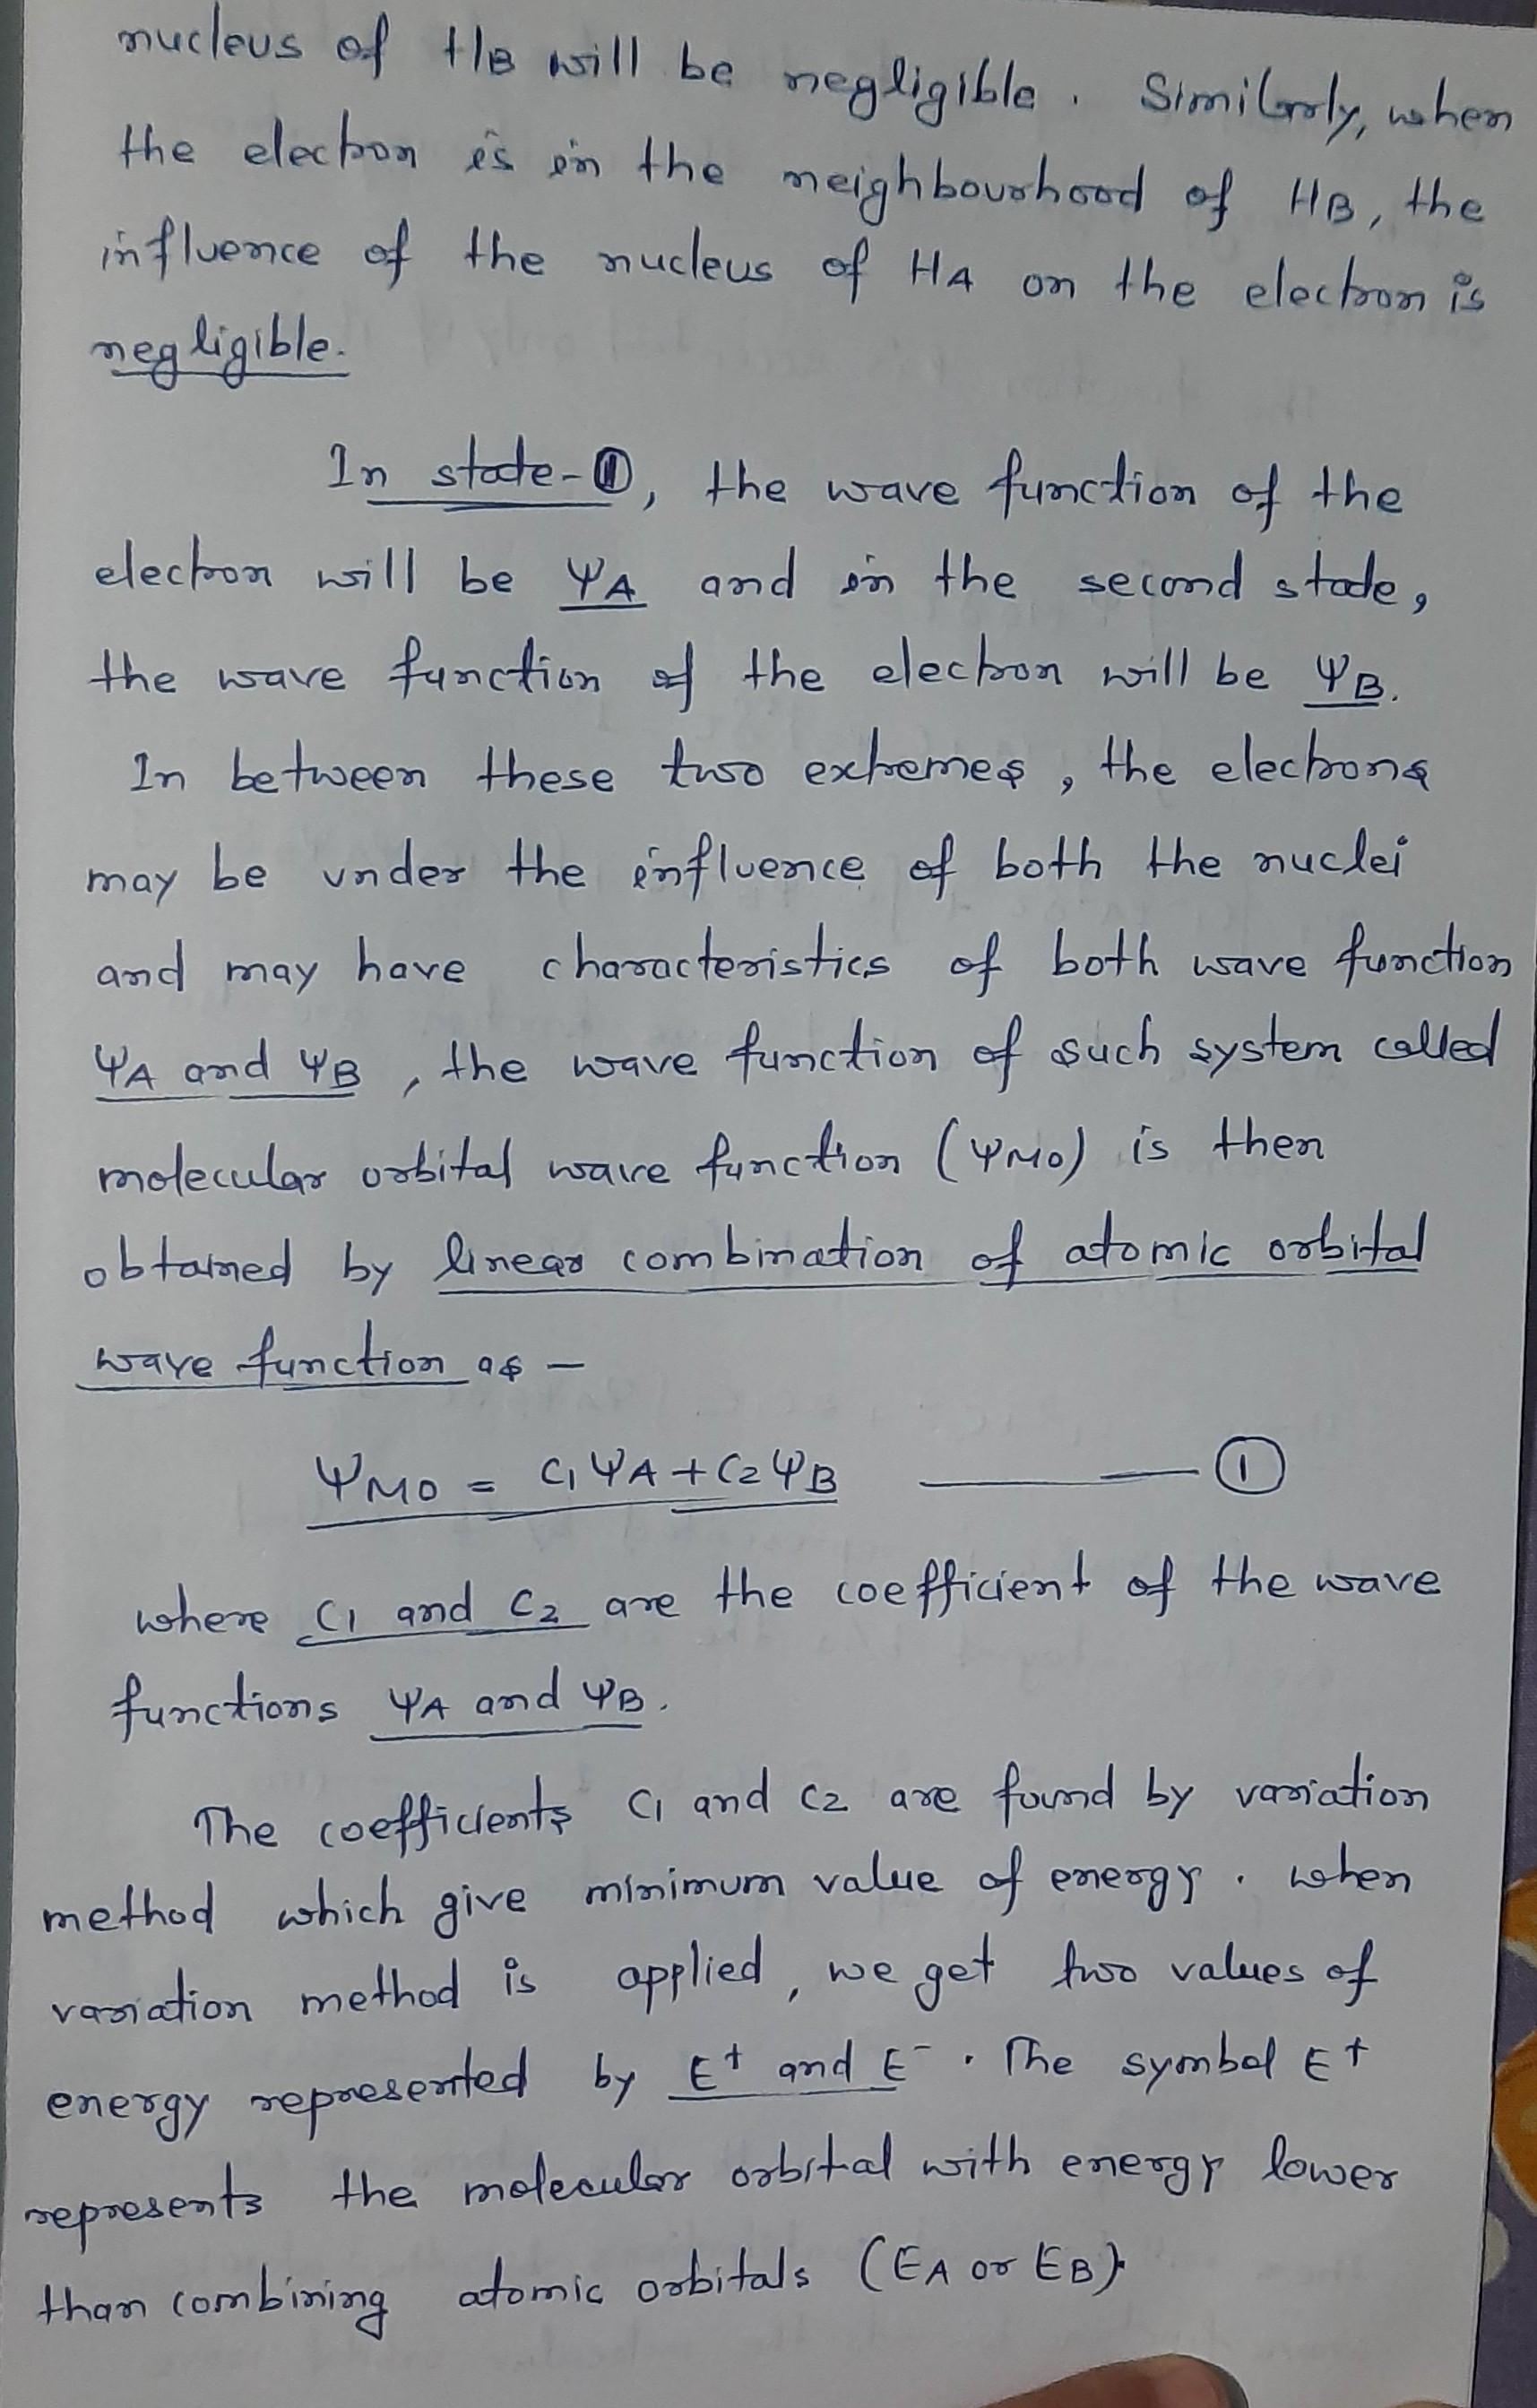 nucleus of HB will be negligible. Similarly, when
the electron is in the neighbourhood of HB, the
influence of the nucleus of HA on the electron is
negligible.
In state-①, the wave function of the
electron will be ΨA and in the second state,
the wave function of the electron will be ΨB.
In between these two extremes, the electrons
may be under the influence of both the nuclei
and may have characteristics of both wave function
ΨA and ΨB, the wave function of such system called
molecular orbital wave function (ΨMO) is then
obtained by linear combination of atomic orbital
wave function as —
ΨMO = C1ΨA + C2ΨB ——— ①
where C1 and C2 are the coefficient of the wave
functions ΨA and ΨB.
The coefficients C1 and C2 are found by variation
method which give minimum value of energy. when
variation method is applied, we get two values of
energy represented by E⁺ and E⁻. The symbol E⁺
represents the molecular orbital with energy lower
than combining atomic orbitals (EA or EB)